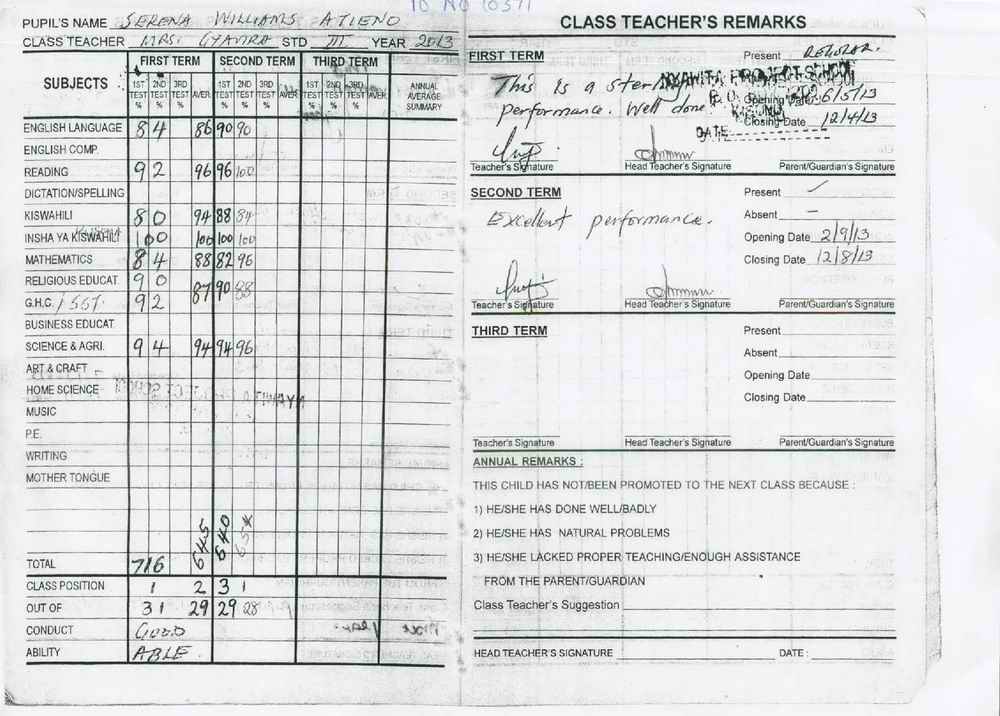 ID NO 10371
PUPIL'S NAME SERENA WILLIAMS ATIENO
CLASS TEACHER MRS. STD III YEAR 2013
SUBJECTS FIRST TERM SECOND TERM THIRD TERM ANNUAL AVERAGE SUMMARY
1ST TEST % 2ND TEST % 3RD TEST % AVER 1ST TEST % 2ND TEST % 3RD TEST % AVER 1ST TEST % 2ND TEST % 3RD TEST % AVER
ENGLISH LANGUAGE 84 86 90 90
ENGLISH COMP.
READING 92 96 96 100
DICTATION/SPELLING
KISWAHILI 80 94 88 84
INSHA YA KISWAHILI 100 100 100 100
MATHEMATICS 84 88 82 96
RELIGIOUS EDUCAT. 90
G.H.C. / SST. 92 87 90 88
BUSINESS EDUCAT.
SCIENCE & AGRI. 94 94 94 96
ART & CRAFT
HOME SCIENCE
MUSIC
P.E.
WRITING
MOTHER TONGUE
TOTAL 716 645 640
CLASS POSITION 1 2 3 1
OUT OF 31 29 29 28
CONDUCT GOOD
ABILITY ABLE.
CLASS TEACHER'S REMARKS
FIRST TERM Present REGULAR.
This is a performance. Well done
NYAWITA PROJECT SCHOOL
Opening Date 6/5/13
Closing Date 12/4/13
DATE
Teacher's Signature Head Teacher's Signature Parent/Guardian's Signature
SECOND TERM Present
Excellent performance.
Absent –
Opening Date 2/9/13
Closing Date 12/8/13
Teacher's Signature Head Teacher's Signature Parent/Guardian's Signature
THIRD TERM Present
Absent
Opening Date
Closing Date
Teacher's Signature Head Teacher's Signature Parent/Guardian's Signature
ANNUAL REMARKS :
THIS CHILD HAS NOT/BEEN PROMOTED TO THE NEXT CLASS BECAUSE :
1) HE/SHE HAS DONE WELL/BADLY
2) HE/SHE HAS NATURAL PROBLEMS
3) HE/SHE LACKED PROPER TEACHING/ENOUGH ASSISTANCE
FROM THE PARENT/GUARDIAN
Class Teacher's Suggestion
HEAD TEACHER'S SIGNATURE DATE :